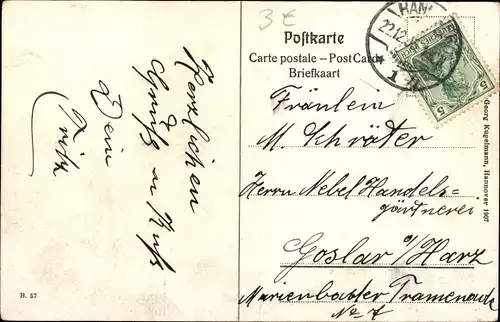 3 €
Herzlichen
Gruß u Kuß
Dein
Fritz
B. 57
Postkarte
Carte postale – Post Card
Briefkaart
HAN
22.12.
5
5
Fräulein
M. Schröter
Herrn Nebel Handels=
gärtnerei
Goslar a/Harz
Marienbader
No 7
Georg Kugelmann, Hannover 1907